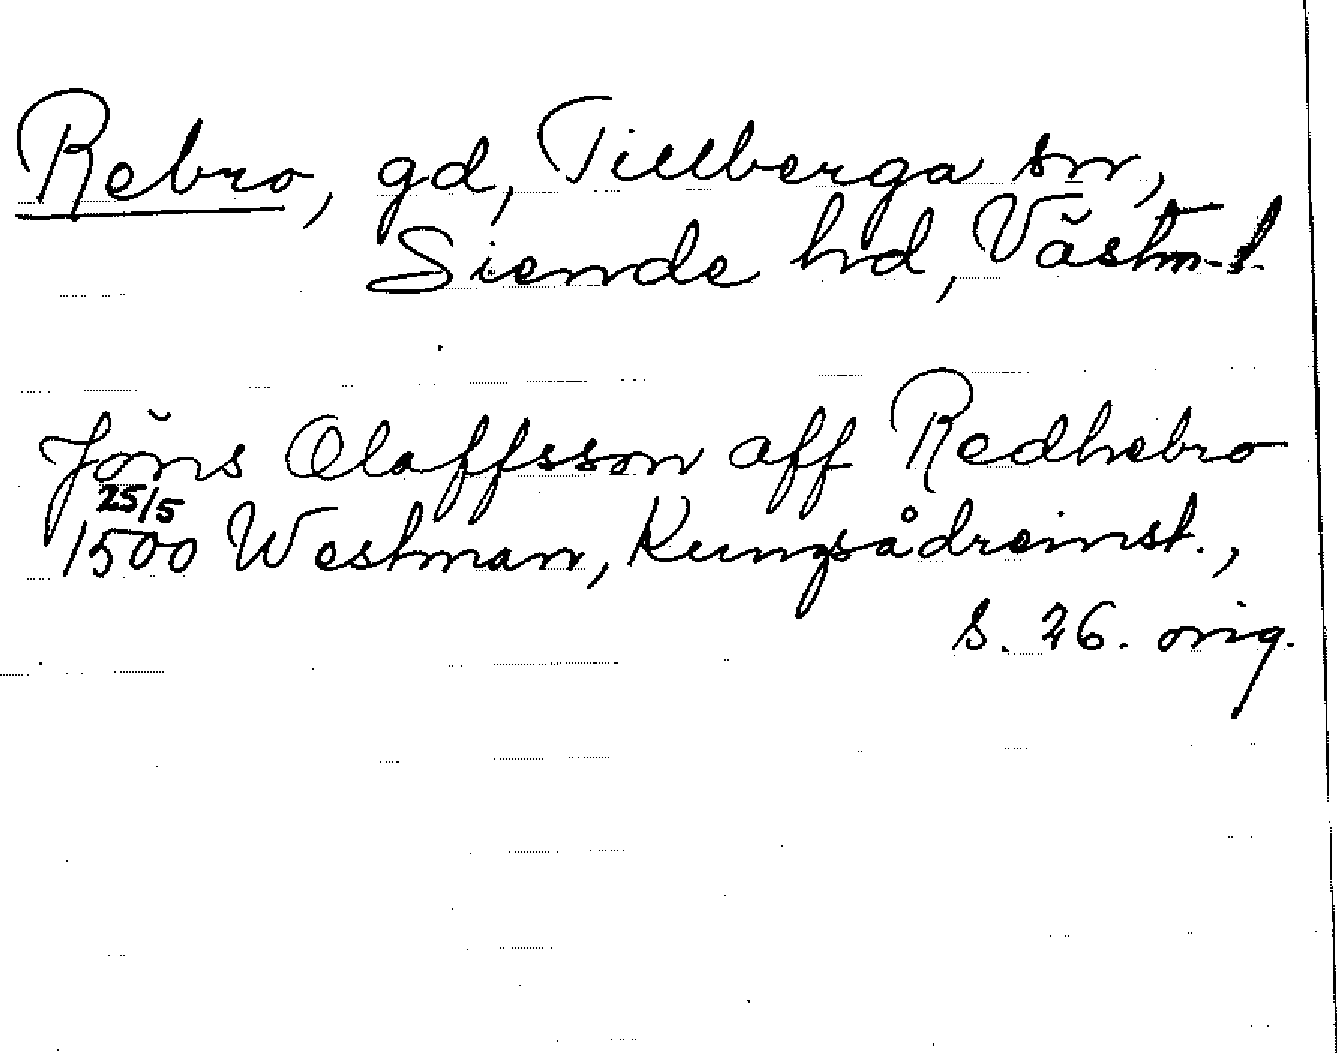 Rebro, gd, Tillberga sn,
Siende hd, Västm. l.
Jöns Olaffsson aff Redhebro
25/5
1500 Westman, Kungsådreinst.,
s. 26. orig.